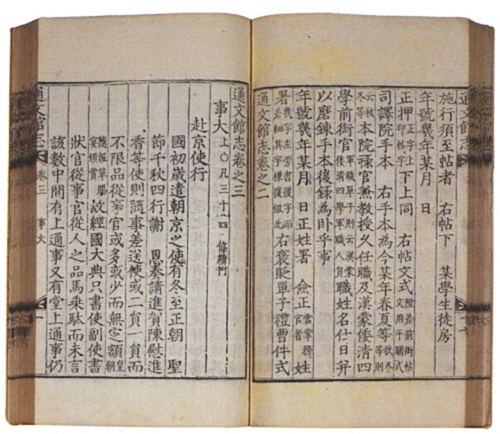 通文館志
施行須至帖者 右帖下 某學生徒房
年號幾年某月 日
正押 下上同 右帖文式
司譯院手本 右手本爲今某年春夏等
云秋冬等 本院祿官兼教授久任職及漢蒙倭清四
學前銜官 職姓名仕日幷
以磨鍊手本後錄爲卧乎事
年號幾年某月 日正姓署 僉正 姓
署 右褒貶單子禮曹件式
通文館志卷之二
通文館志卷之三
事大 上○凡三十四
赴京使行
國初歲遣朝京之使有冬至正朝 聖
節千秋四行謝 恩奏請進賀陳慰進
香等使則隨事差送使或二員一員而
不限品從事官或多或少而無定額
故經國大典只書使副使書
狀官從事官從人之品馬乘馱而未言
該數中間有上通事又有堂上通事仍
通文館志 卷三 事大 一